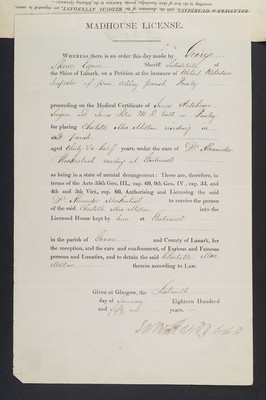 MADHOUSE LICENSE.
WHEREAS there is an order this day made by George
Skene Esquire Sheriff Substitute of
the Shire of Lanark, on a Petition at the instance of Robert
Inspector of poor Abbey Parish Paisley
proceeding on the Medical Certificates of James
Surgeon and James M.D. both in Paisley
for placing Charlotte Mac Millan residing in
said parish
aged thirty two years, under the care of Dr. Alexander
Mackintosh residing at Gartnavel
as being in a state of mental derangement: These are, therefore, in
terms of the Acts 55th Geo. III., cap. 69, 9th Geo. IV., cap. 34, and
4th and 5th Vict., cap. 60, Authorising and Licensing the said
Dr. Alexander Mackintosh to receive the person
of the said Charlotte Mac Millan into the
Licensed House kept by him at Gartnavel
in the parish of Govan and County of Lanark, for
the reception, and the care and confinement, of Furious and Fatuous
Persons and Lunatics, and to detain the said Charlotte Mac
Millan therein according to Law.
Given at Glasgow, the
day of January Eighteen Hundred
and fifty one years.